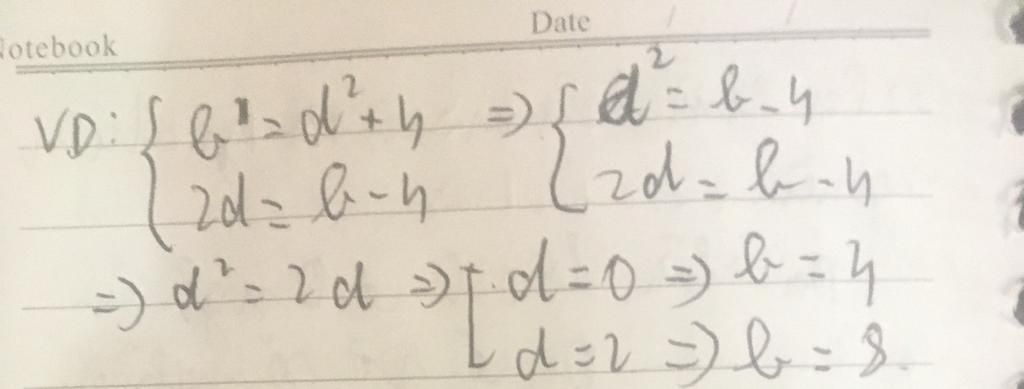 Notebook Date / /
VD: { b = d² + 4 => { d² = b - 4
2d = b - 4 2d = b - 4
=> d² = 2d => [ . d = 0 => b = 4
d = 2 => b = 8.